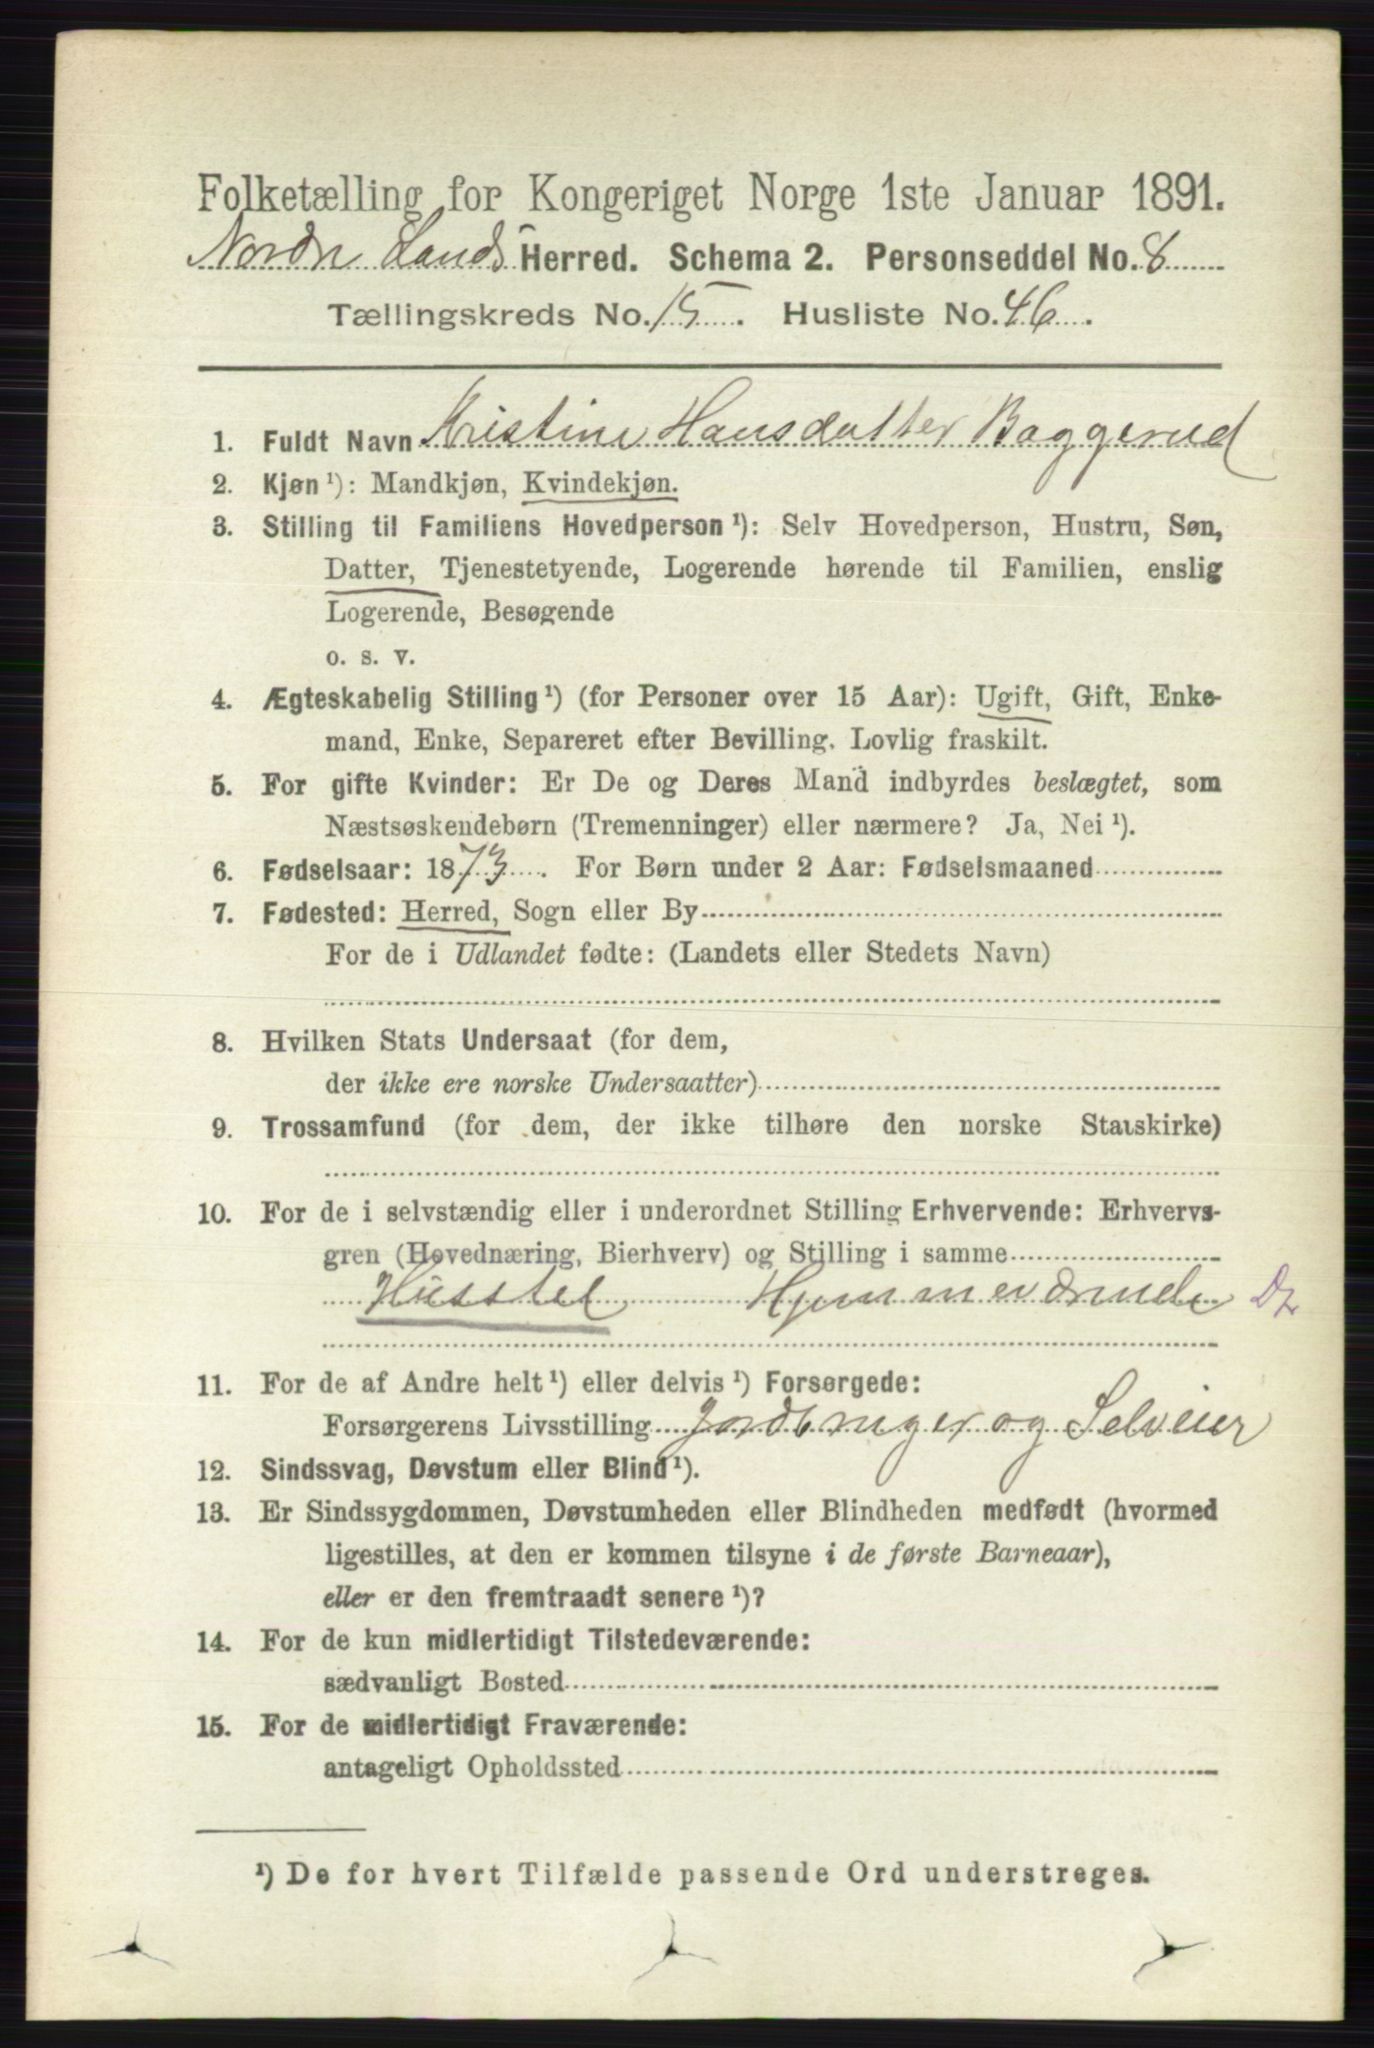 Folketælling for Kongeriget Norge 1ste Januar 1891.
Nordre Lands Herred. Schema 2. Personseddel No. 8
Tællingskreds No. 15. Husliste No. 46.
1. Fuldt Navn Kristine Hansdatter Baggerud
2. Kjøn ¹): Mandkjøn, Kvindekjøn.
3. Stilling til Familiens Hovedperson ¹): Selv Hovedperson, Hustru, Søn,
Datter, Tjenestetyende, Logerende hørende til Familien, enslig
Logerende, Besøgende
o. s. v.
4. Ægteskabelig Stilling ¹) (for Personer over 15 Aar): Ugift, Gift, Enke-
mand, Enke, Separeret efter Bevilling. Lovlig fraskilt.
5. For gifte Kvinder: Er De og Deres Mand indbyrdes beslægtet, som
Næstsøskendebørn (Tremenninger) eller nærmere? Ja, Nei ¹).
6. Fødselsaar: 1873. For Børn under 2 Aar: Fødselsmaaned
7. Fødested: Herred, Sogn eller By
For de i Udlandet fødte: (Landets eller Stedets Navn)
8. Hvilken Stats Undersaat (for dem,
der ikke ere norske Undersaatter)
9. Trossamfund (for dem, der ikke tilhøre den norske Statskirke)
10. For de i selvstændig eller i underordnet Stilling Erhvervende: Erhvervs-
gren (Hovednæring, Bierhverv) og Stilling i samme
Husstel Hjemmeværende
11. For de af Andre helt ¹) eller delvis ¹) Forsørgede:
Forsørgerens Livsstilling Jordbruger og Selveier
12. Sindssvag, Døvstum eller Blind ¹).
13. Er Sindssygdommen, Døvstumheden eller Blindheden medfødt (hvormed
ligestilles, at den er kommen tilsyne i de første Barneaar),
eller er den fremtraadt senere ¹)?
14. For de kun midlertidigt Tilstedeværende:
sædvanligt Bosted
15. For de midlertidigt Fraværende:
antageligt Opholdssted
¹) De for hvert Tilfælde passende Ord understreges.